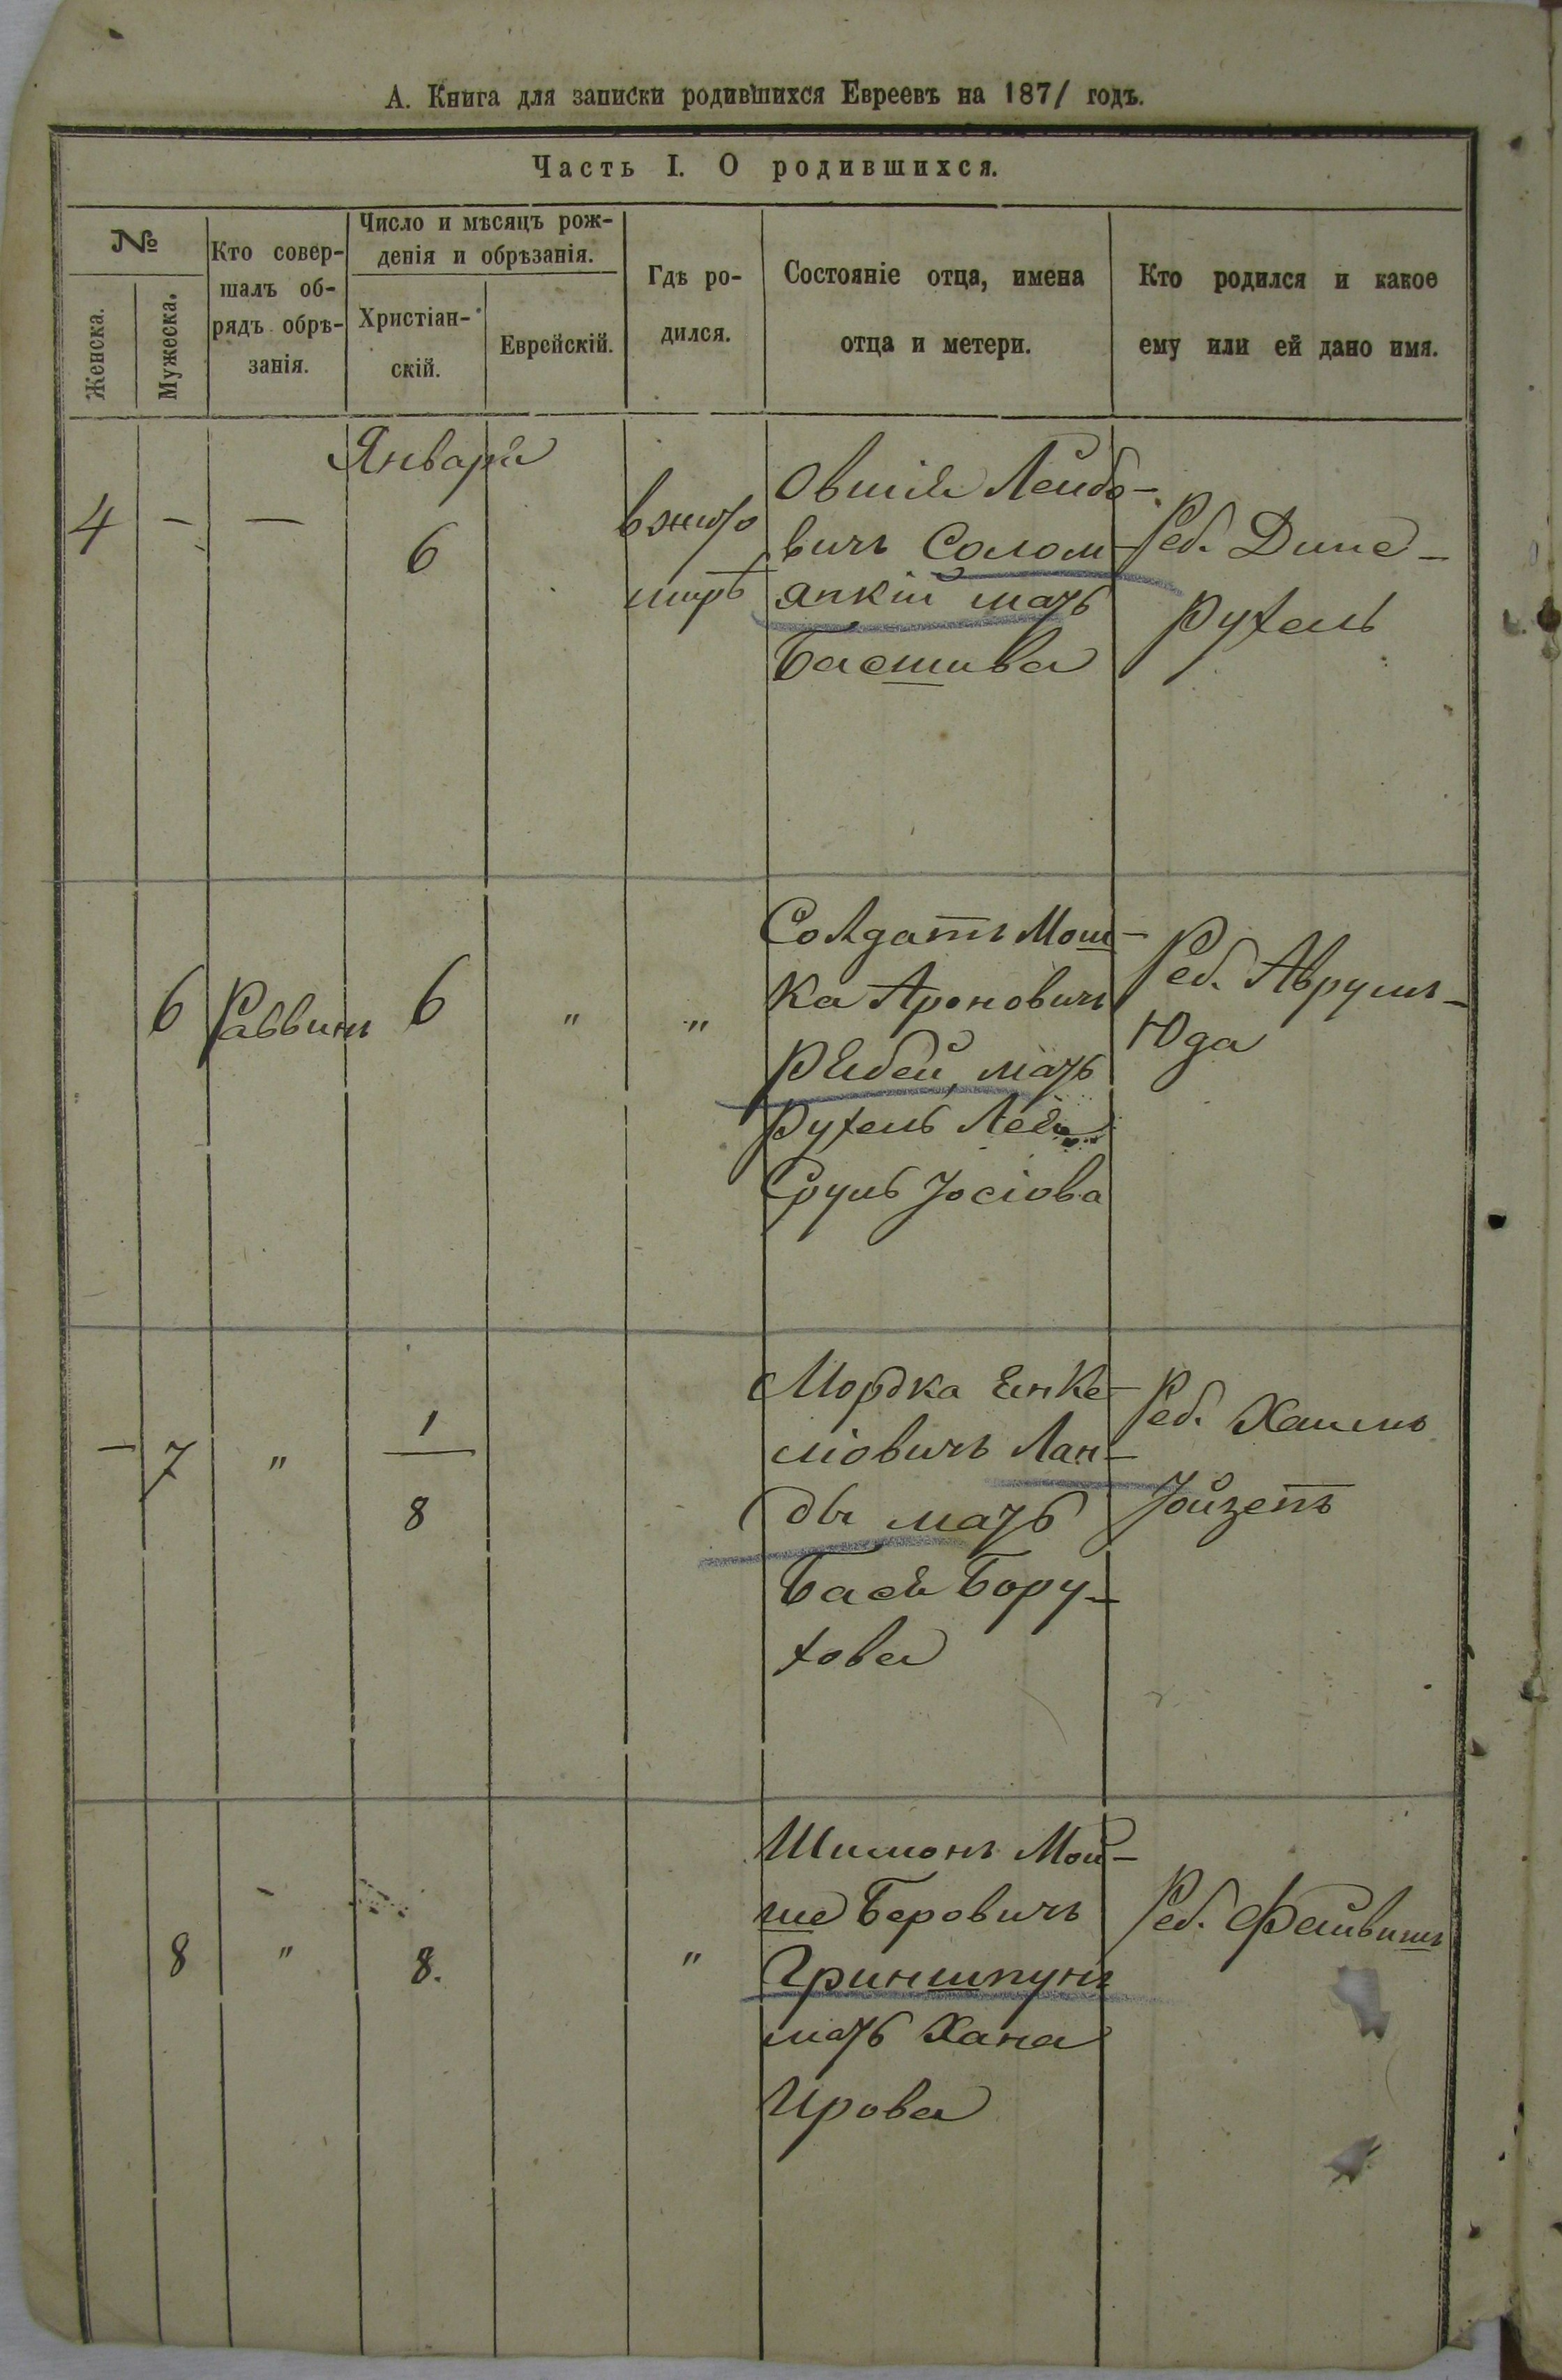 А. Книга для записки родившихся Евреевъ на 1871 годъ.
Часть I. О родившихся.
№
Женска.
Мужеска.
Кто совер-
шалъ об-
рядъ обрѣ-
занія.
Число и мѣсяцъ рож-
денія и обрѣзанія.
Христіан-
скій.
Еврейскій.
Гдѣ ро-
дился.
Состояніе отца, имена
отца и метери.
Кто родился и какое
ему или ей дано имя.
Января
4 — — 6
в жито
мирѣ
Овшія Лейбо-
вичъ Солом-
япкій мать
Басшива
Реб. Дине-
Рухель
6 Раввинъ 6 " "
Солдатъ Мош-
ка Ароновичъ
Рябей, мать
Рухель Лея
Сруль Іосіова
Реб. Аврумъ-
Юда
— 7 " 1
8
Мордка Янке-
ліовичъ Лан-
ды мать
Бася Бору-
хова
Реб. Хаимъ
Іойзепъ
8 " 8. "
Шимонъ Мой-
ше Беровичъ
Гриншпунъ
мать Хана
Ирова
Реб. Файвишъ